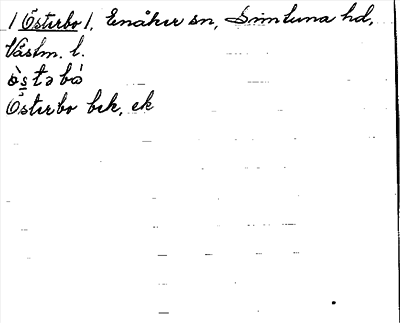 /Österbo/, Enåker sn, Simtuna hd,
Västm. l.
Österbo bek, ek